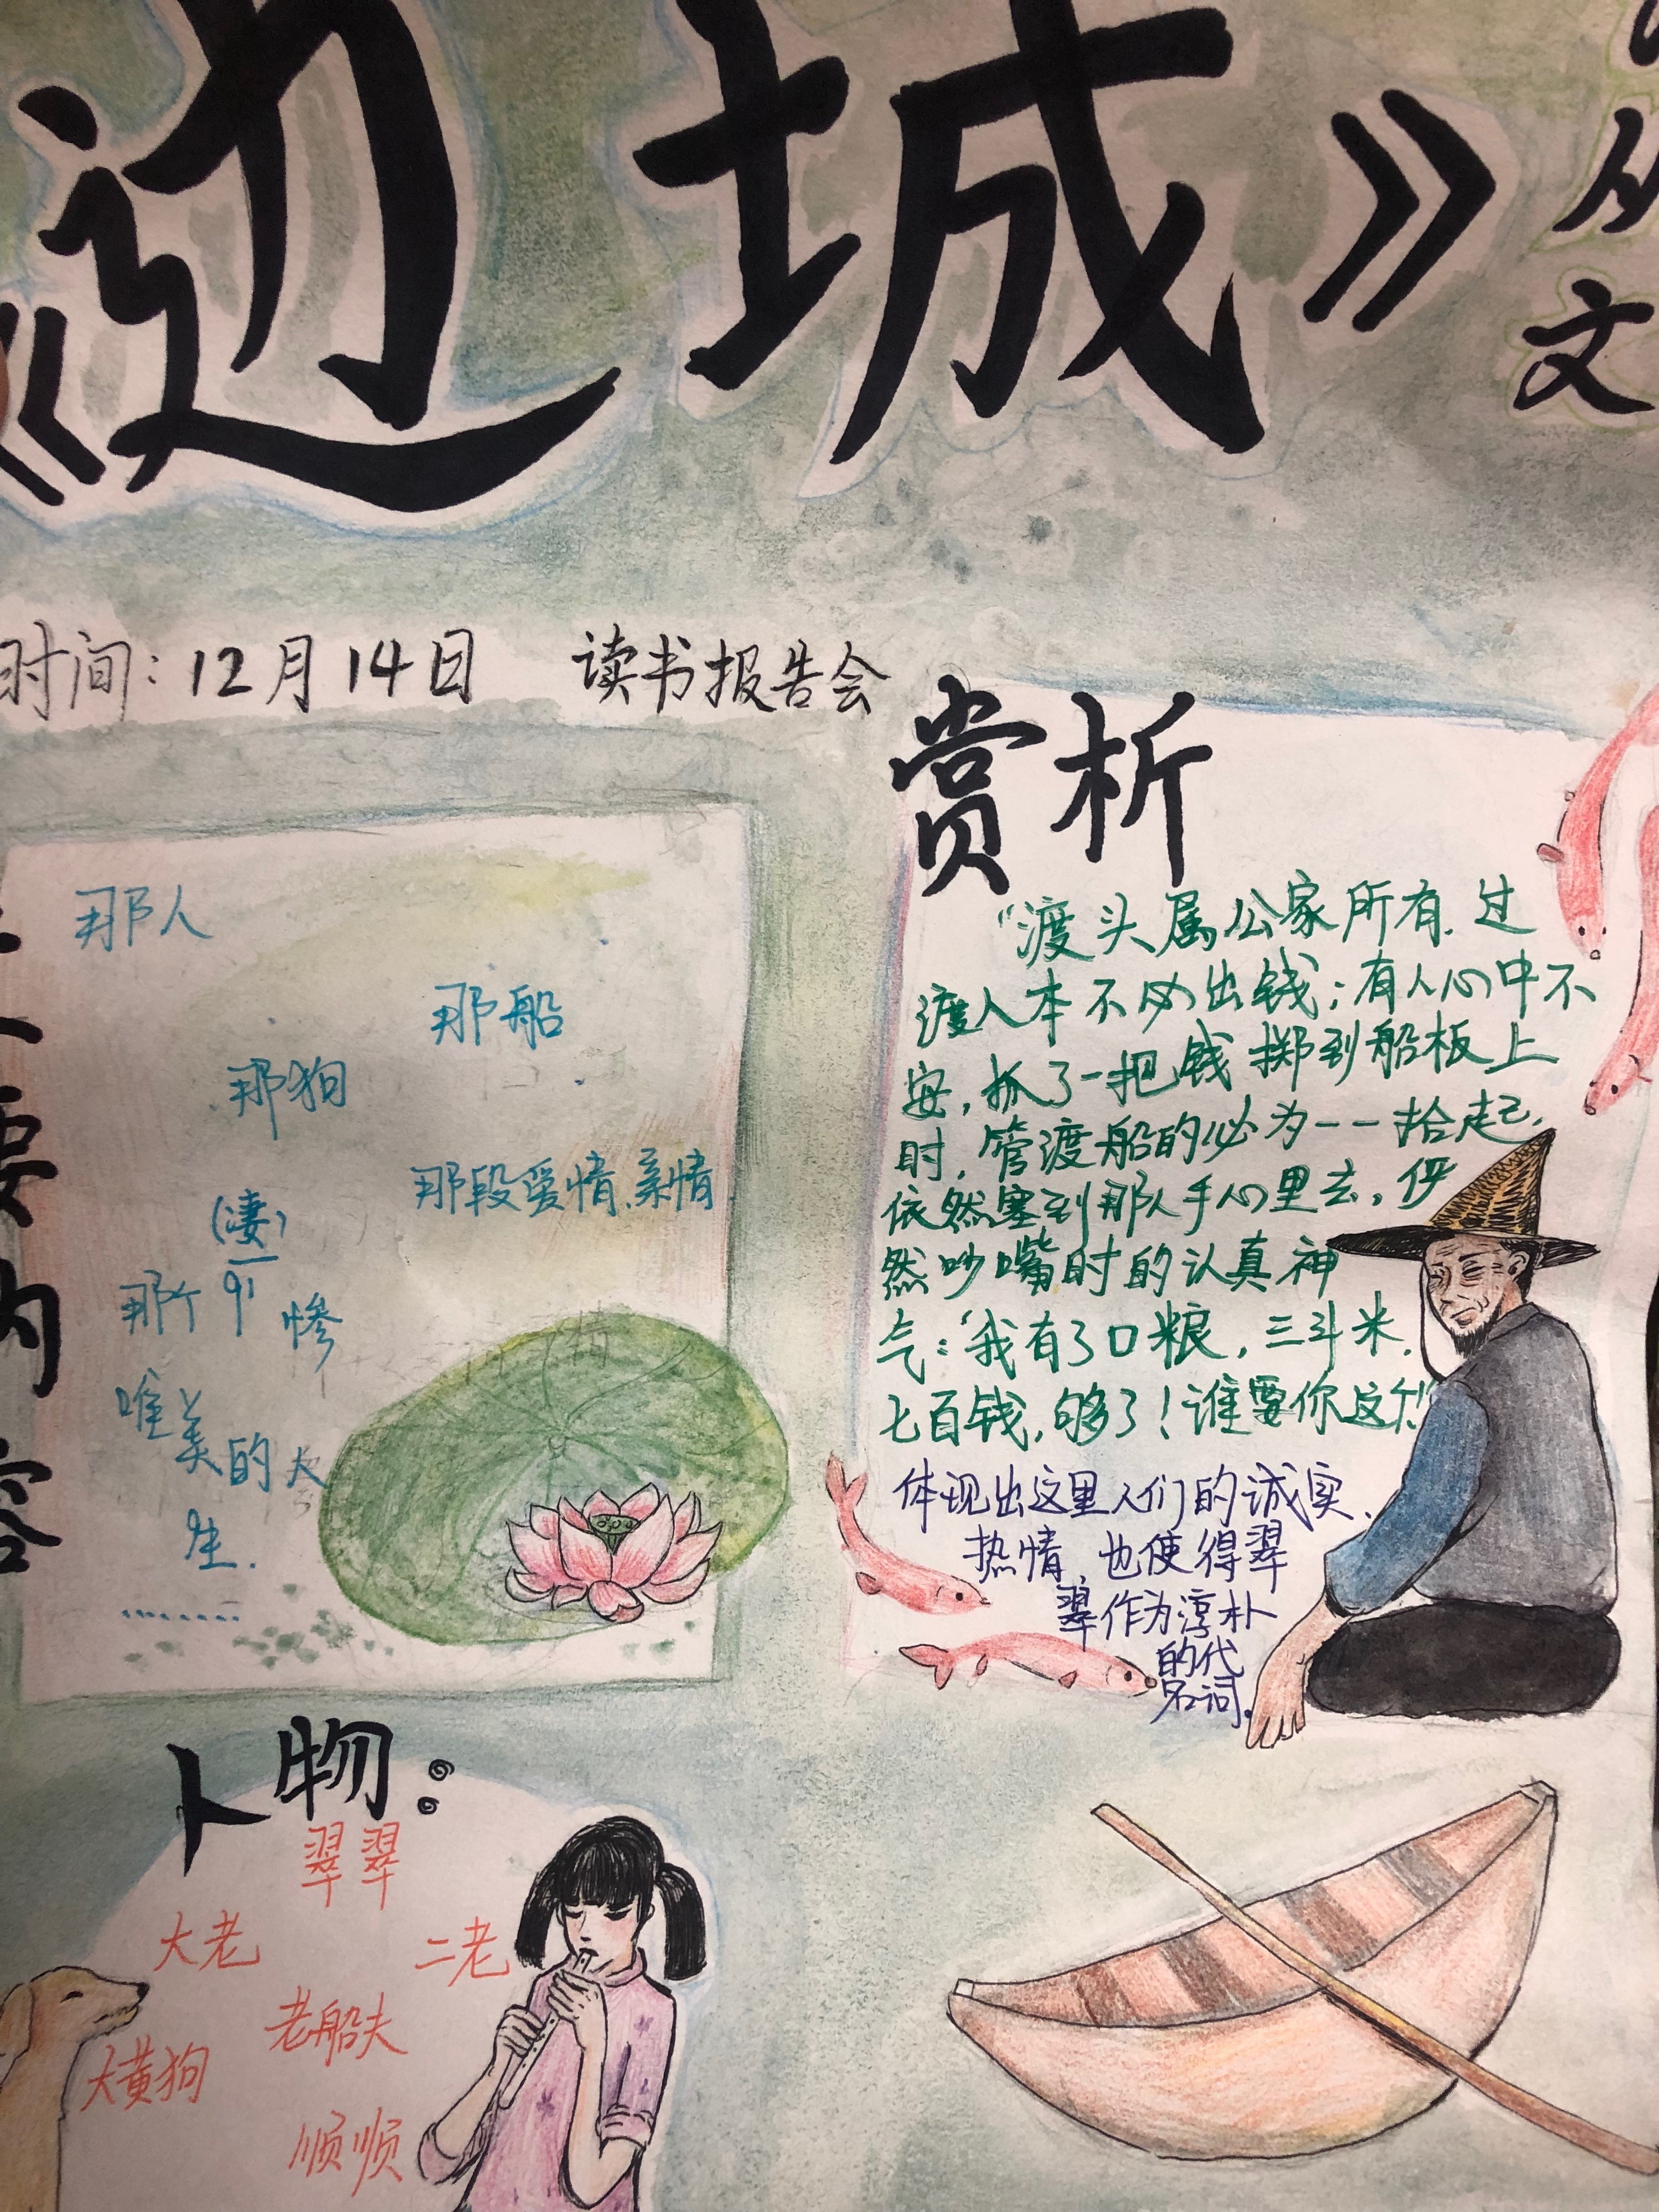 《边城》
从
文
时间：12月14日 读书报告会
要
内
容
那人
那船
那狗
那段爱情、亲情
(凄)
那个 惨
唯美的人
生.
………
赏析
"渡头属公家所有.过
渡人本不必出钱；有人心中不
安，抓了一把钱掷到船板上
时，管渡船的必为一一拾起，
依然塞到那人手心里去，俨
然吵嘴时的认真神
气：'我有了口粮，三斗米，
七百钱，够了！谁要你这个!'"
体现出这里人们的诚实、
热情，也使得翠
翠作为淳朴
的代
名词.
人物：
翠翠
大老
二老
老船夫
大黄狗
顺顺